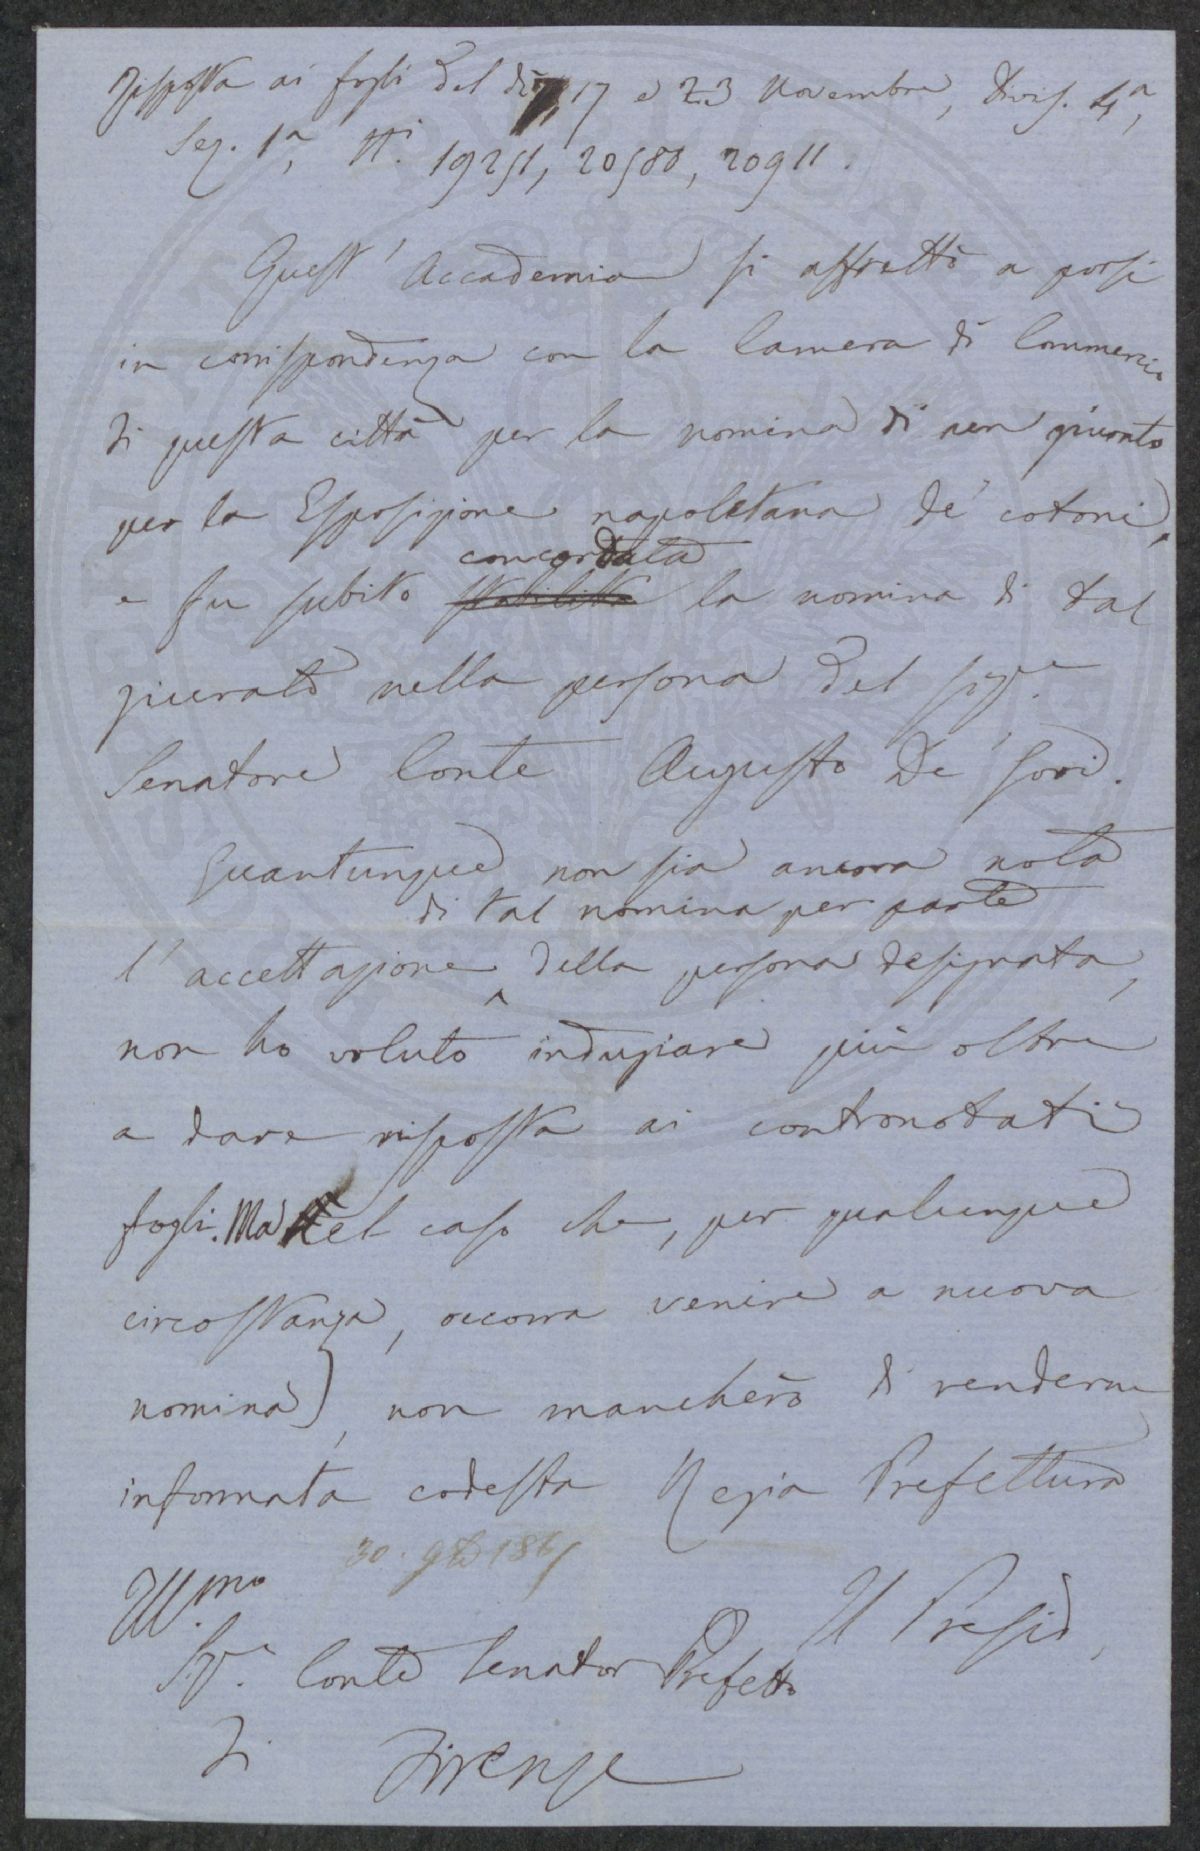 Risposta ai fogli del dì 7, 17 e 23 Novembre, Divis. 4ª,
Sez. 1ª, Nⁱ. 19251, 20588, 20911.
Quest' Accademia si affrettò a porsi
in corrispondenza con la Camera di Commercio
di questa città per la nomina di un giurato
per la Esposizione napoletana de' cotoni,
concordata
e fu subito stabilita la nomina di tal
giurato nella persona del sigʳᵉ.
Senatore Conte Augusto De' Gori.
Quantunque non sia ancora nota
di tal nomina per parte
l'accettazione della persona designata,
non ho voluto indugiare più oltre
a dare risposta ai contronotati
fogli. Ma nel caso che, per qualunque
circostanza, occorra venire a nuova
nomina, non mancherò di renderne
informata codesta Regia Prefettura
30. 9bre 186
Ill.mo
Il Presid,
Sigʳ. Conte Senator Prefetto
di Firenze